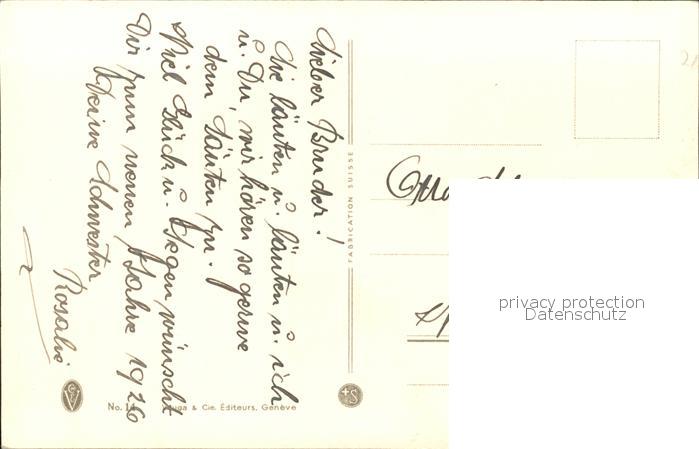 Lieber Bruder!
Sie läuten u. läuten u. ich
u. Du, wir hören so gerne
dem Läuten zu.
Viel Glück u. Segen wünscht
Dir zum neuen Jahre 1926
Deine Schwester
Rosalie
FABRICATION SUISSE
No. & Cie. Éditeurs, Genève
+S
privacy protection
Datenschutz